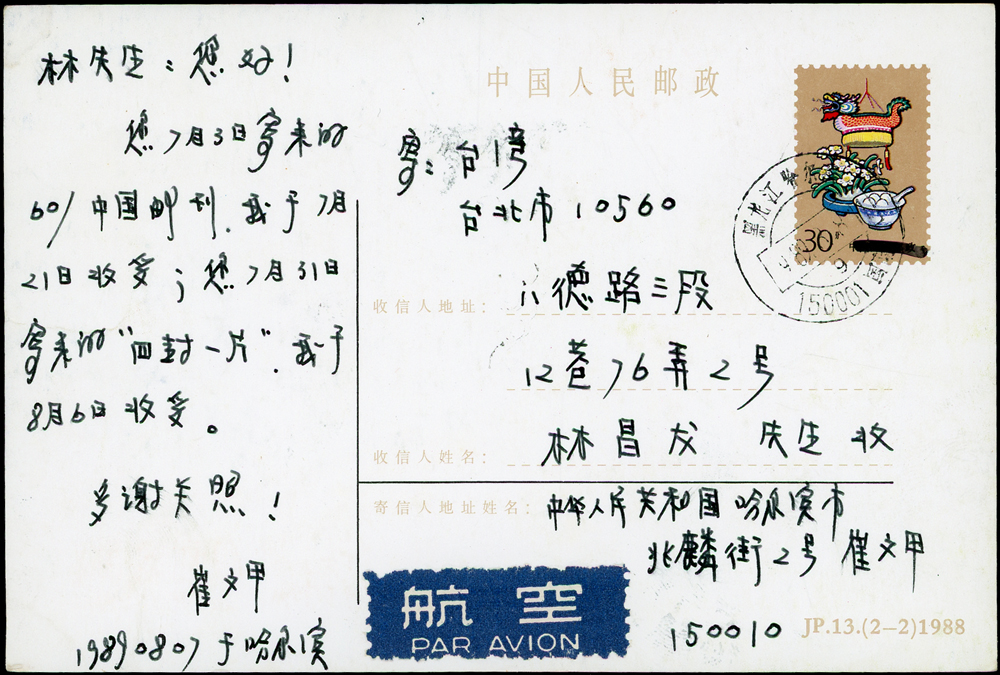 林先生：您好！
您7月3日寄来的
601中国邮刊，我于7月
21日收妥；您7月31日
寄来的“四封一片”，我于
8月6日收妥。
多谢关照！
崔文甲
19890807于哈尔滨
中国人民邮政
寄：台湾
台北市10560
收信人地址：
八德路三段
12巷76弄2号
收信人姓名：
林昌龙 先生 收
寄信人地址姓名：
中华人民共和国哈尔滨市
北麟街2号崔文甲
150010
航空
PAR AVION
JP.13.(2–2)1988
30
黑龙江
150001